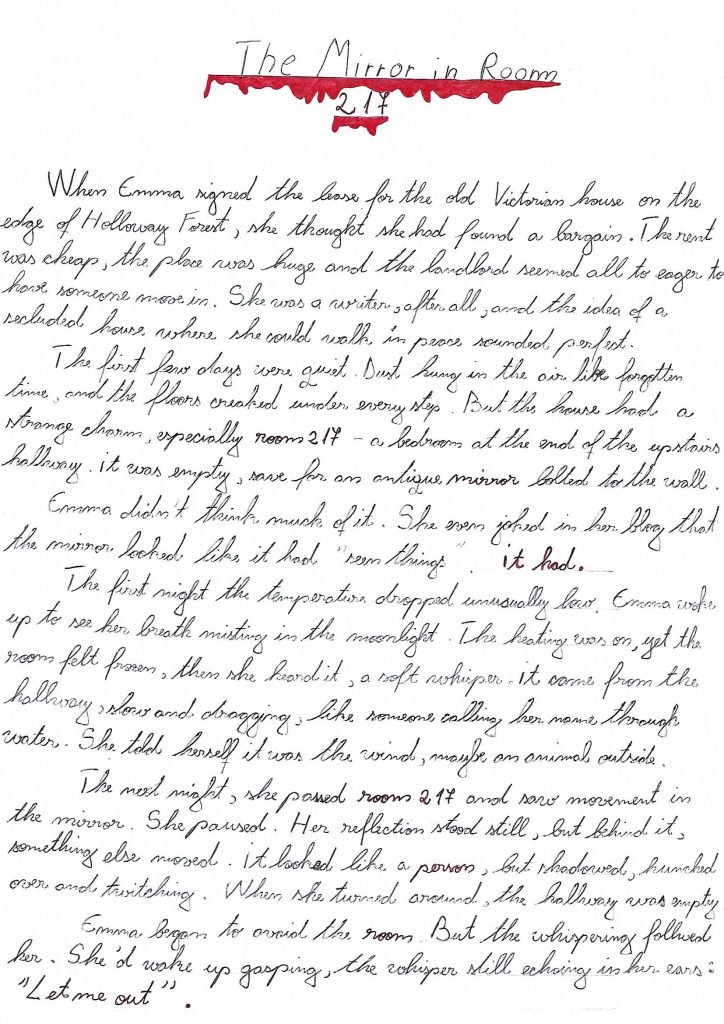 The Mirror in Room
217
When Emma signed the lease for the old Victorian house on the
edge of Holloway Forest, she thought she had found a bargain. The rent
was cheap, the place was huge and the landlord seemed all to eager to
have someone move in. She was a writer, after all, and the idea of a
secluded house where she could walk in peace sounded perfect.
The first few days were quiet. Dust hung in the air like forgotten
time, and the floors creaked under every step. But ths house had a
strange charm, especially room 217 - a bedroom at the end of the upstairs
hallway. it was empty, save for an antique mirror bolted to the wall.
Emma didn't think much of it. She even joked in her blog that
the mirror looked like it had "seen things". it had.
The first night the temperature dropped unusually low. Emma woke
up to see her breath misting in the moonlight. The heating was on, yet the
room felt frozen, then she heard it, a soft whisper. it came from the
hallway, slow and dragging, like someone calling her name through
water. She told herself it was the wind, maybe an animal outside.
The next night, she passed room 217 and saw movement in
the mirror. She paused. Her reflection stood still, but behind it,
something else moved. it looked like a person, but shadowed, hunched
over and twitching. When she turned around, the hallway was empty
Emma began to avoid the room. But the whispering follwed
her. She'd wake up gasping, the whisper still echoing in her ears:
"Let me out".